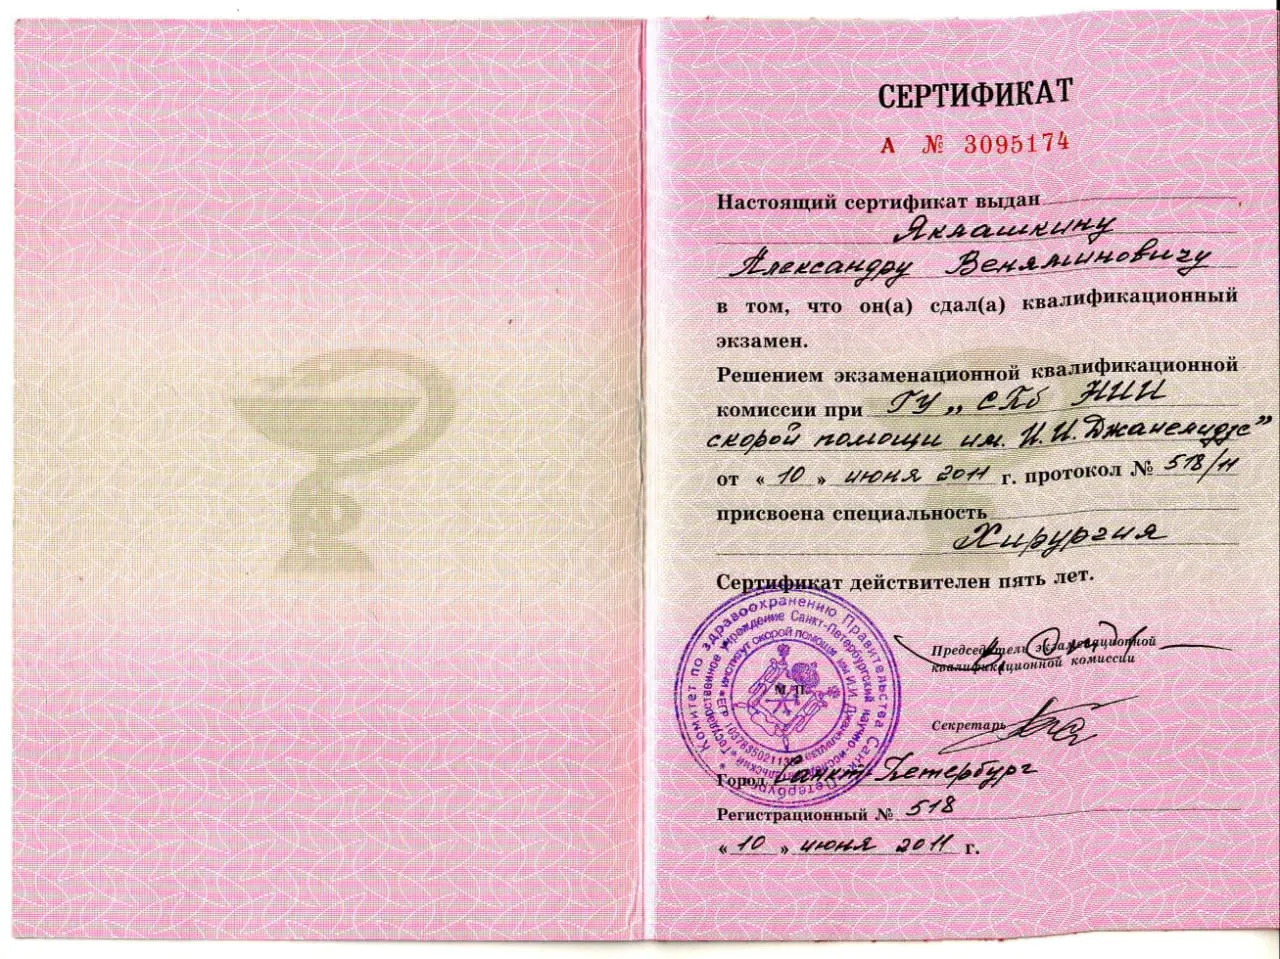 СЕРТИФИКАТ
А № 3095174
Настоящий сертификат выдан
Яклашкину
Александру Вениаминовичу
в том, что он(а) сдал(а) квалификационный
экзамен.
Решением экзаменационной квалификационной
комиссии при ГУ „СПб НИИ
скорой помощи им. И.И. Джанелидзе"
от « 10 » июня 2011 г. протокол № 518/н
присвоена специальность
Хирургия
Сертификат действителен пять лет.
Комитет по здравоохранению Правительства Санкт-Петербурга
Государственное учреждение Санкт-Петербургский научно-исследовательский
институт скорой помощи им И.И. Джанелидзе
М.П.
Председатель экзаменационной
квалификационной комиссии
Секретарь
Город Санкт-Петербург
Регистрационный № 518
« 10 » июня 2011 г.